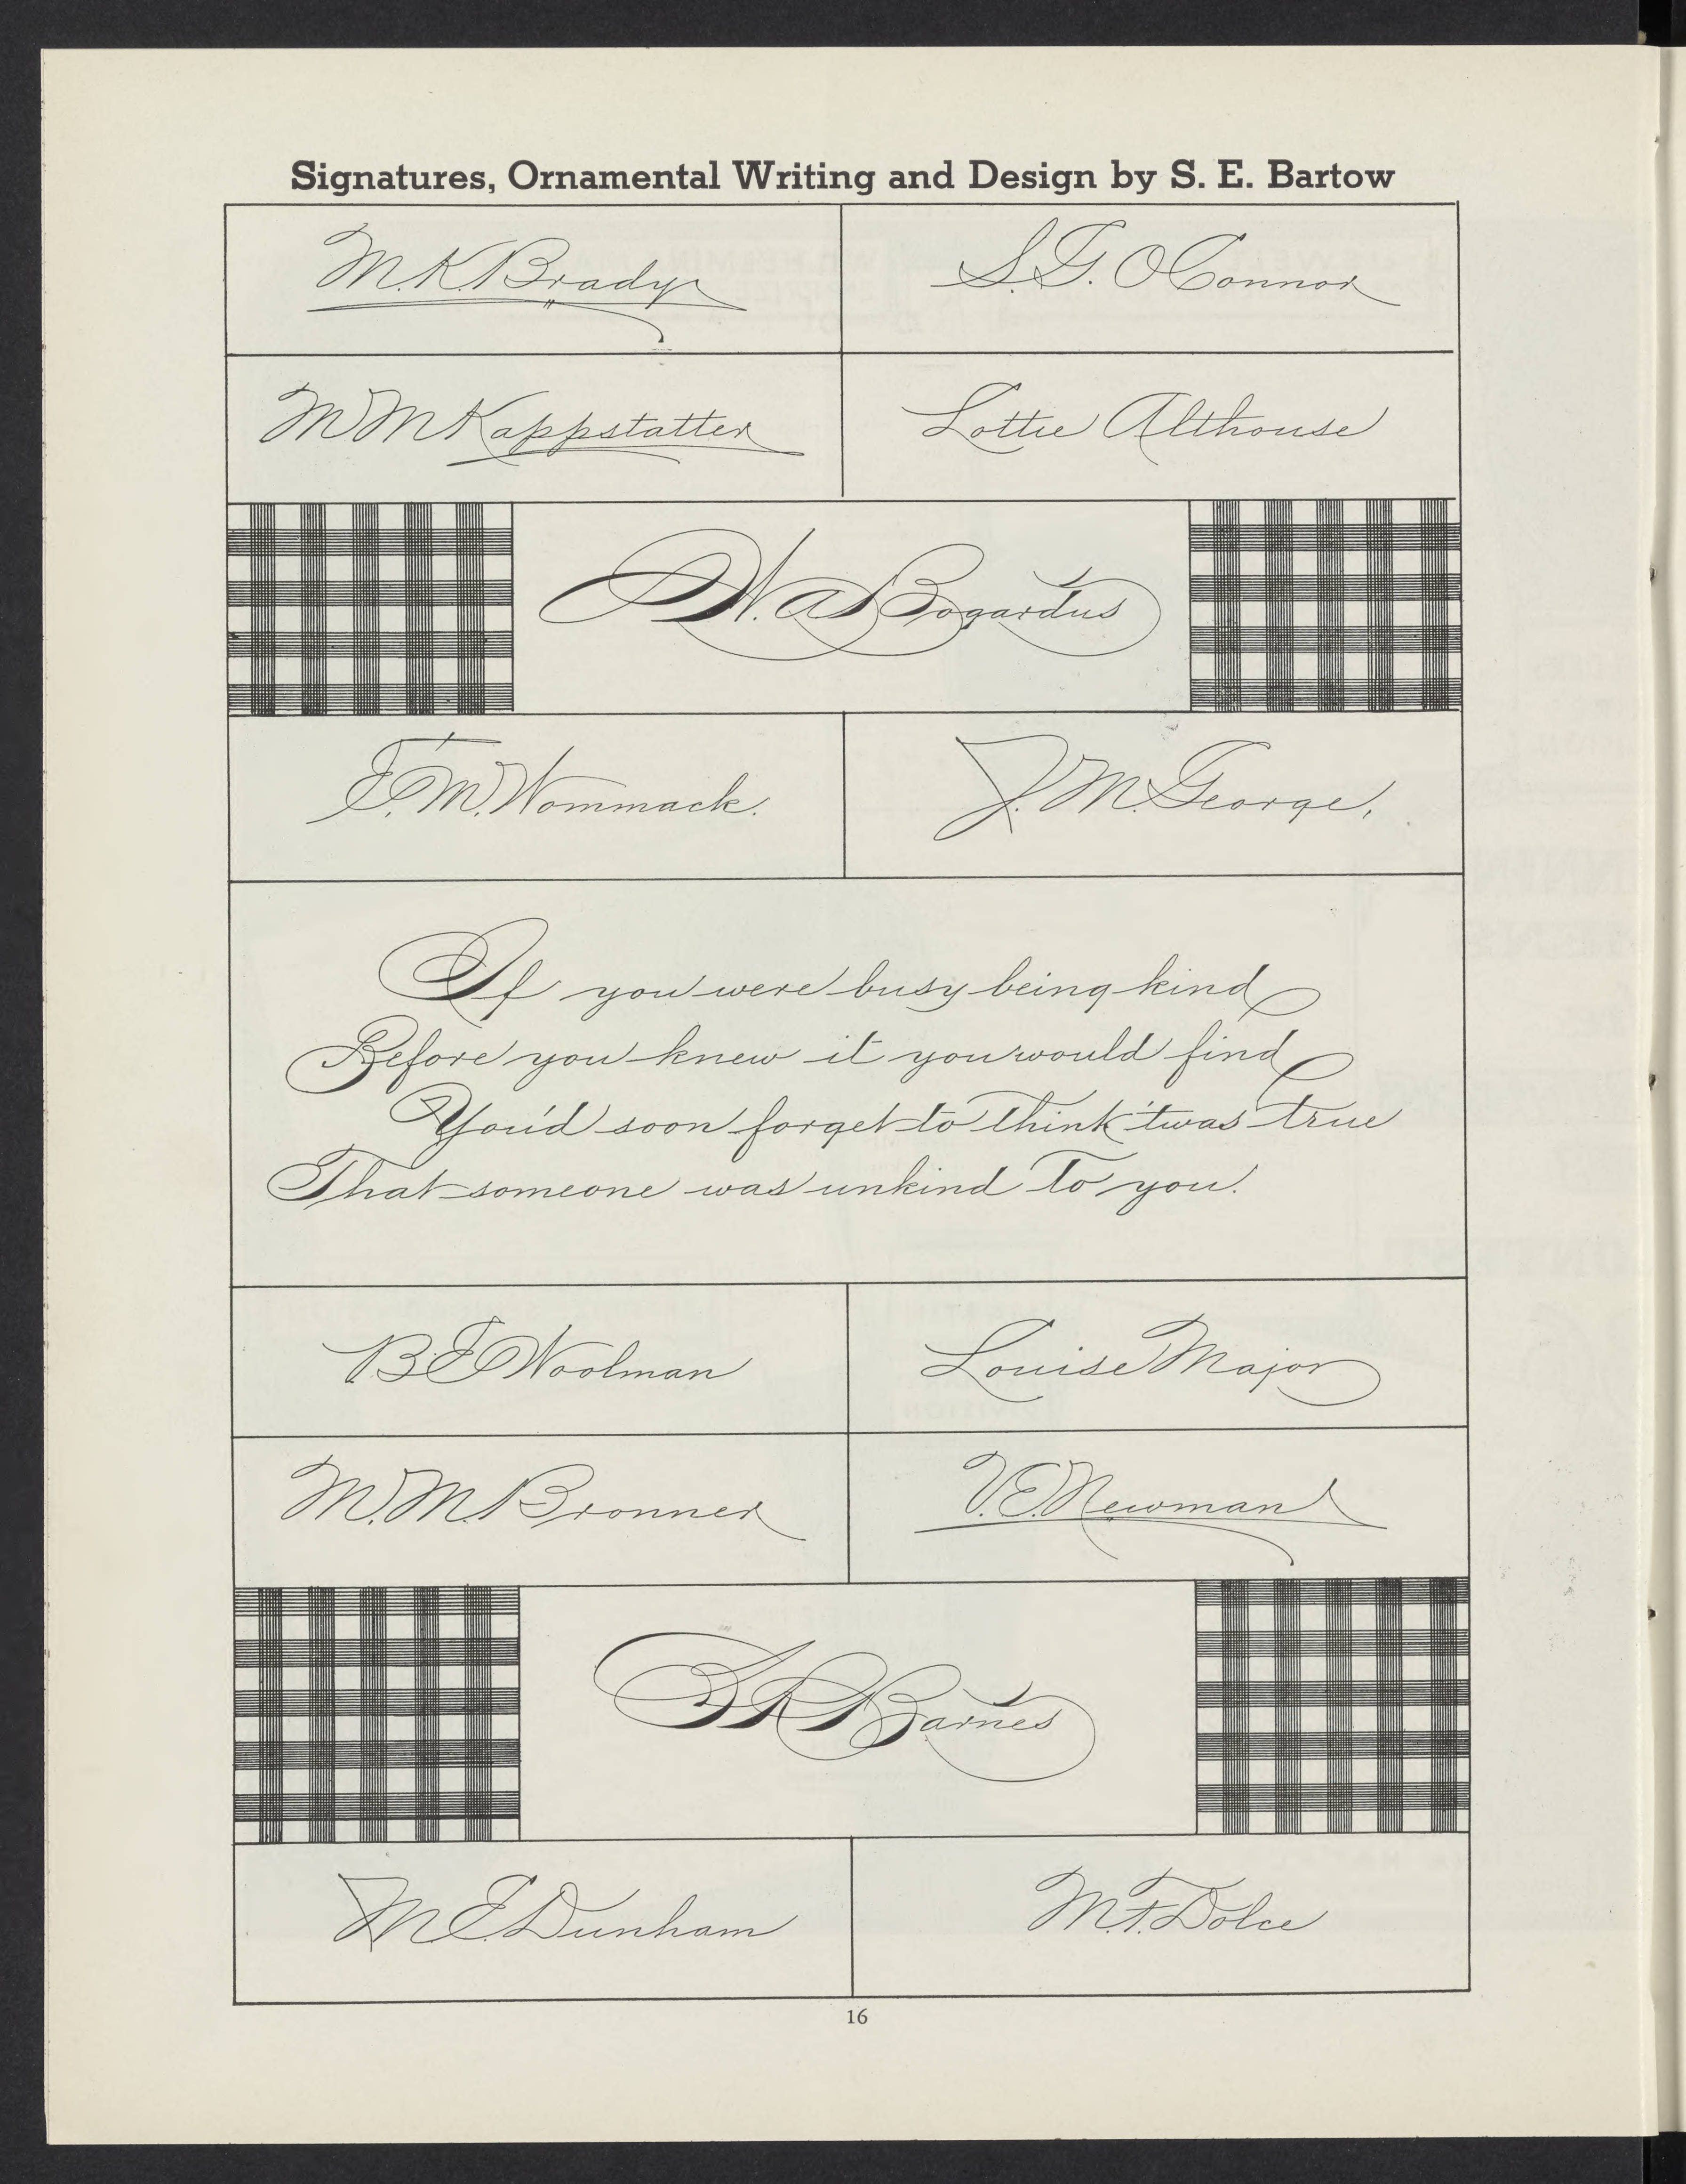 Signatures, Ornamental Writing and Design by S. E. Bartow
M.K. Brady
S.G. O'Connor
M M Kappstatter
Lottie Althouse
W. A. Bogardus
F. M. Wommack.
J. M. George.
If you were busy being kind
Before you knew it you would find
You'd soon forget to think 'twas true
That someone was unkind to you.
B E Woolman
Louise Major
M. M. Bronner
V. E. Newman
Barnes
M E. Dunham
M. F. Dolce
16